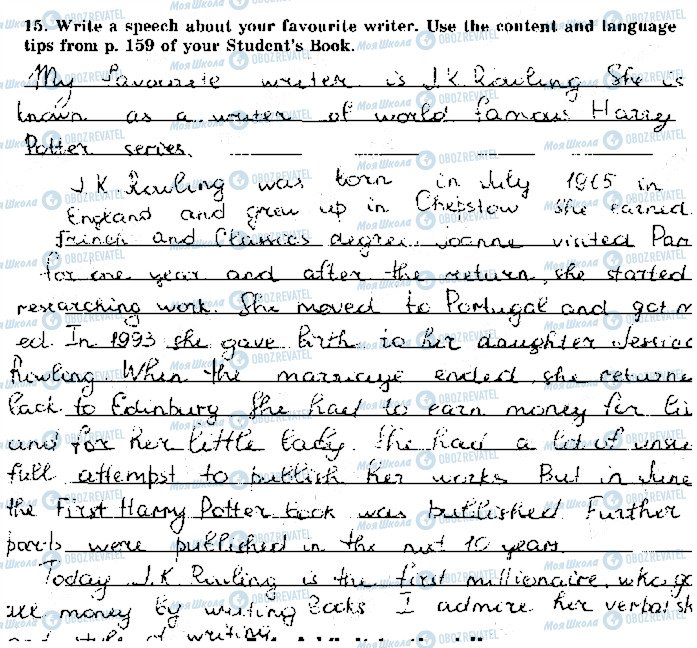 15. Write a speech about your favourite writer. Use the content and language
tips from p. 159 of your Student's Book.
My favourite writer is J.K. Rowling She is
known as a writer of world famous Harry
Potter series.
J.K. Rowling was born in July 1965 in
England and grew up in Chepstow She earned
French and Classics degree. Joanne visited Par
for one year and after the return, she started
researching work. She moved to Portugal and got m
ed. In 1993 she gave birth to her daughter Jessica
Rowling. When the marriage ended, she returne
back to Edinburg She had to earn money for li
and for her little baby. She had a lot of unsu
full attempst to publish her works But in June
the First Harry Potter book was published. Further
parts were published in the next 10 years.
Today J.K. Rowling is the first millionaire, who go
all money by writing books I admire her verbal sk
and style of writing.